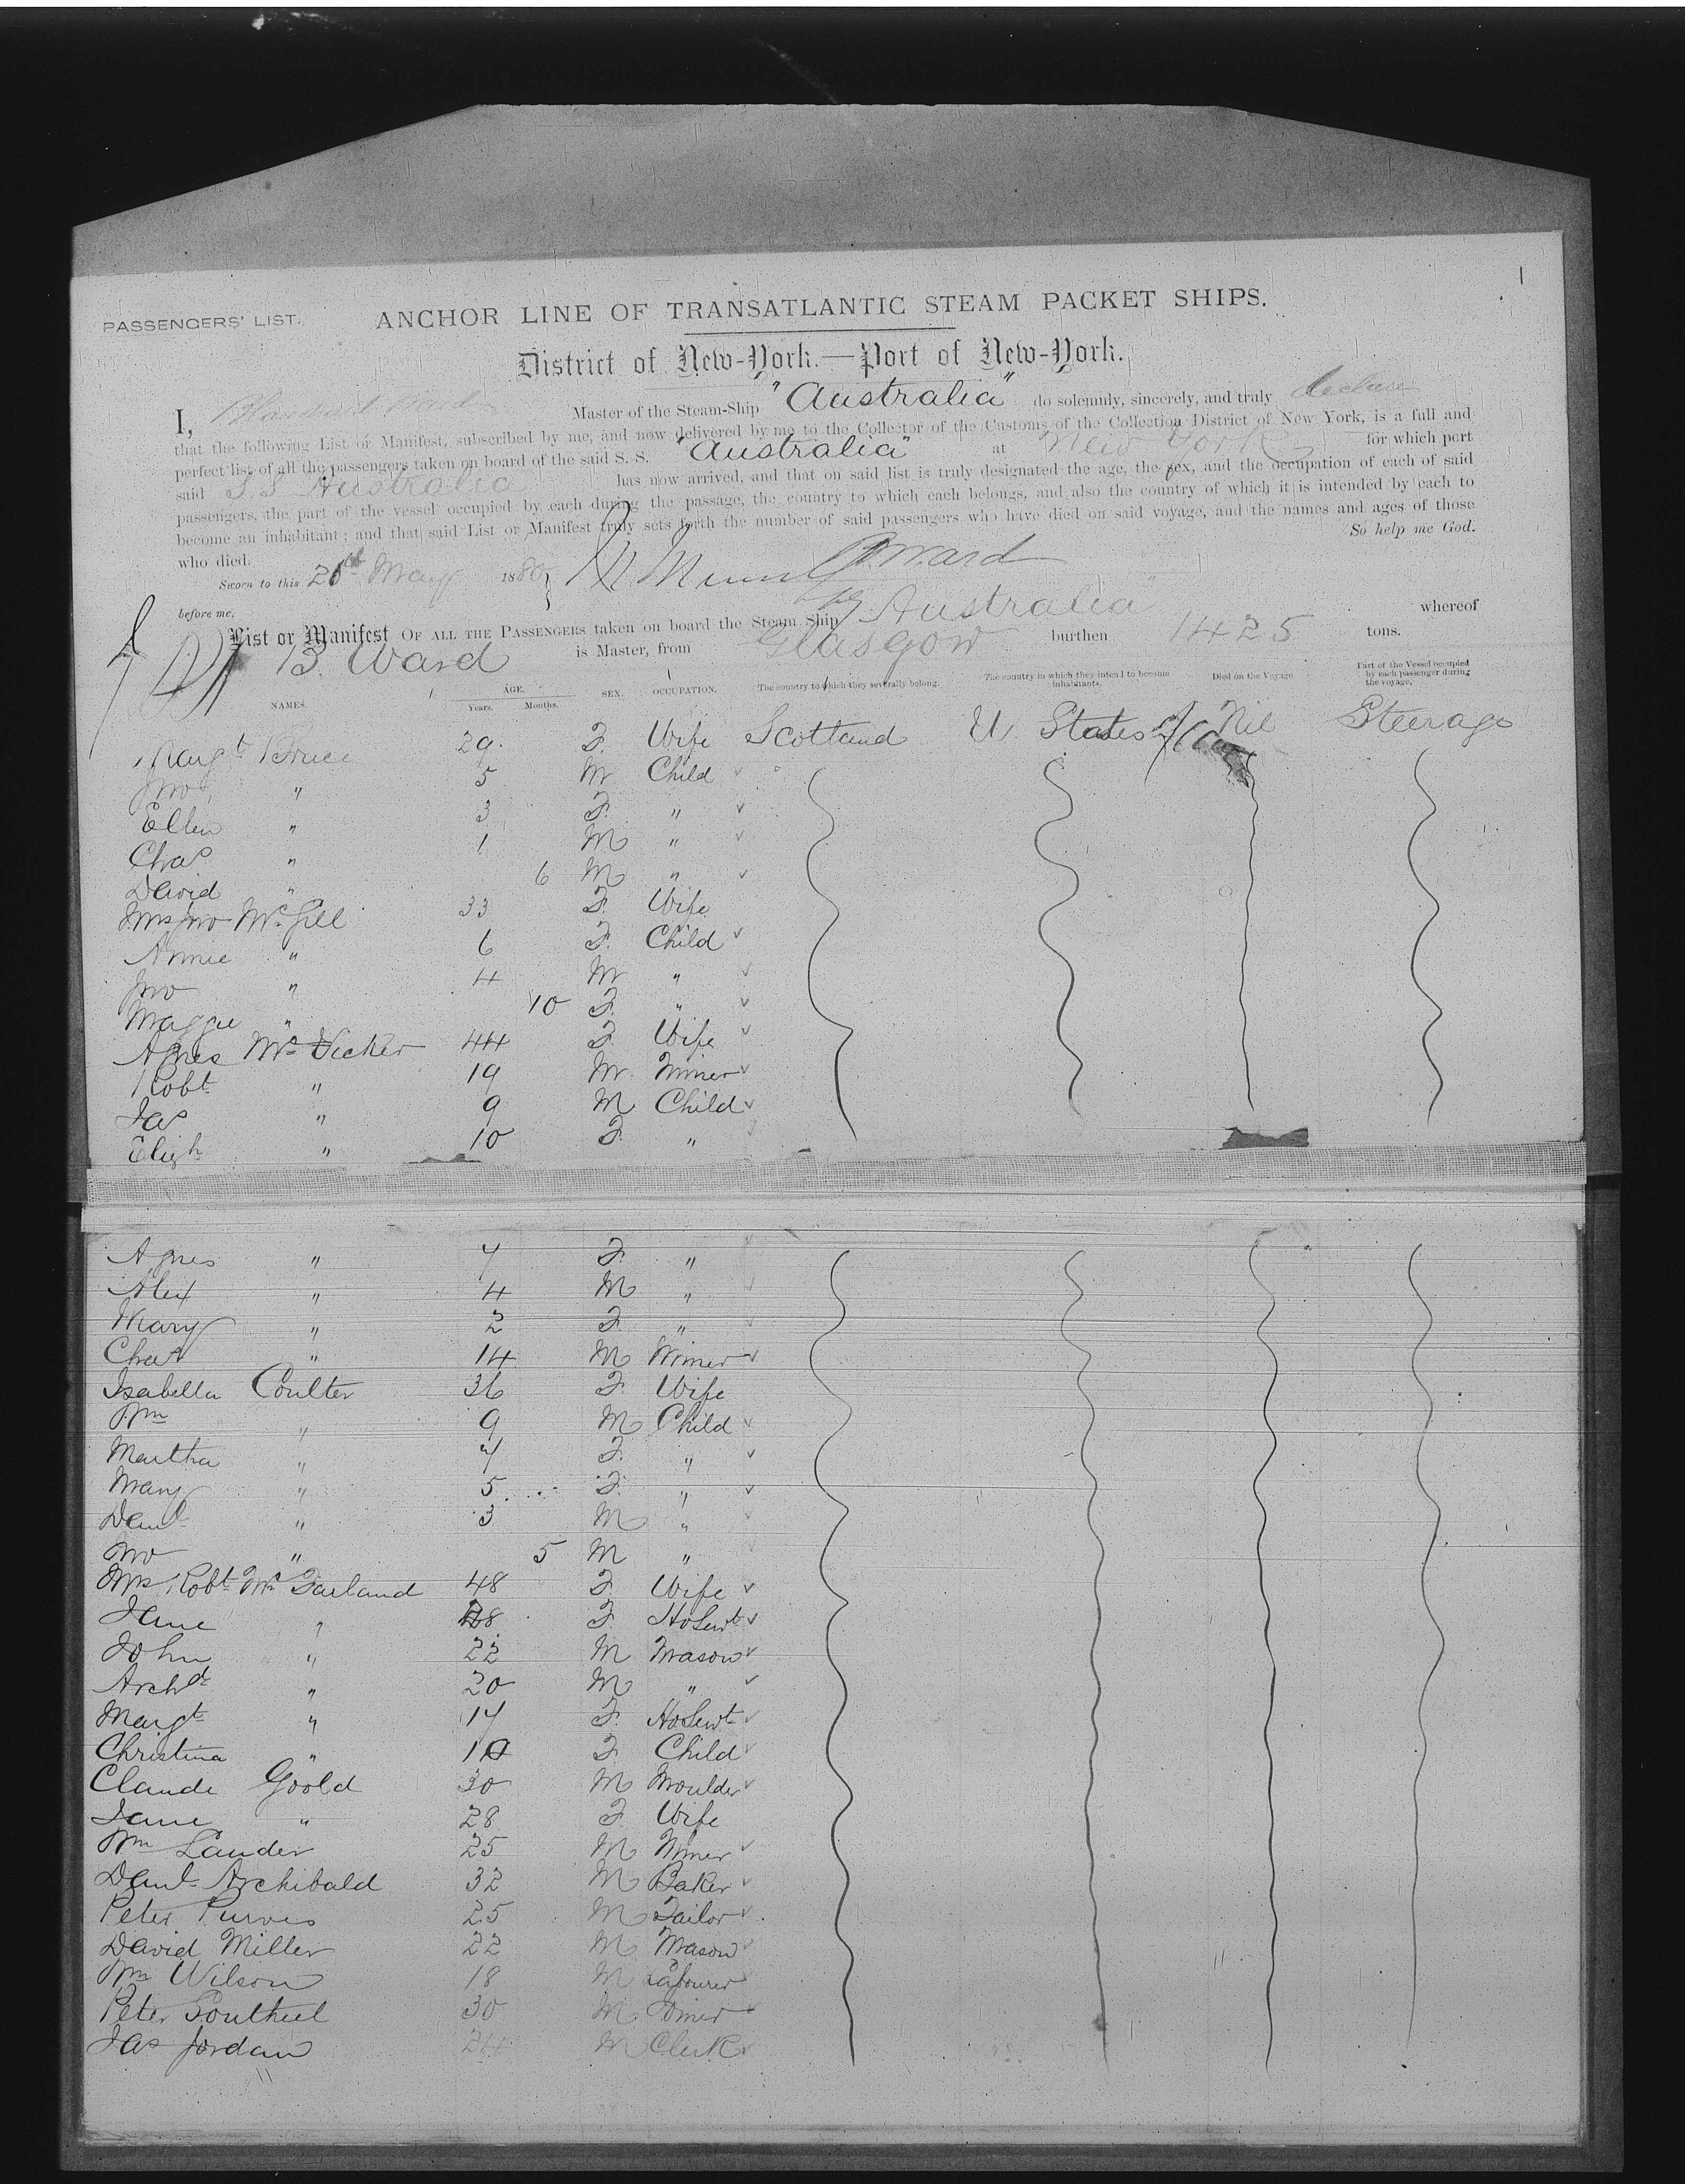 1
PASSENGERS' LIST.
ANCHOR LINE OF TRANSATLANTIC STEAM PACKET SHIPS.
District of New-York.—Port of New-York.
I, Ward Master of the Steam-Ship "Australia" do solemnly, sincerely, and truly declare
that the following List or Manifest, subscribed by me, and now delivered by me to the Collector of the Customs of the Collection District of New York, is a full and
perfect list of all the passengers taken on board of the said S. S. "Australia" at New York for which port
said S.S Australia has now arrived, and that on said list is truly designated the age, the sex, and the occupation of each of said
passengers, the part of the vessel occupied by each during the passage, the country to which each belongs, and also the country of which it is intended by each to
become an inhabitant; and that said List or Manifest truly sets forth the number of said passengers who have died on said voyage, and the names and ages of those
who died. So help me God.
Sworn to this May 1880 B. Ward
before me.
List or Manifest OF ALL THE PASSENGERS taken on board the Steam Ship Australia whereof
B. Ward is Master, from Glasgow burthen 1425 tons.
NAMES. AGE. Years. Months. SEX. OCCUPATION. The country to which they severally belong. The country in which they intend to become inhabitants. Died on the Voyage. Part of the Vessel occupied by each passenger during the voyage.
Margt Bruce 29 F. Wife Scotland U. States of Nil Steerage
Jno " 5 M Child
Ellen " 3 F. "
Chas " 1 M "
David " 6 M "
Mrs Jno McGill 33 F. Wife
Annie " 6 F. Child
Jno " 4 M "
Maggie " 10 F. "
Agnes McVicker 44 F. Wife
Robt " 19 M. Miner
Jas " 9 M Child
Elizh " 10 F. "
Agnes " 7 F. "
Alex " 4 M "
Mary " 2 F. "
Chas " 14 M Miner
Isabella Coulter 36 F. Wife
Wm " 9 M Child
Martha " 7 F. "
Mary " 5 F. "
Danl " 3 M "
Jno " 5 M "
Mrs Robt McFarland 48 F. Wife
Jane " F. HoServt
John " 22 M Mason
Archd " 20 M "
Margt " 17 F. HoServt
Christina " 10 F. Child
Claude Goold 30 M Moulder
Jane " 28 F. Wife
Wm Lauder 25 M Miner
Danl Archibald 32 M Baker
Peter Purves 25 M Tailor
David Miller 22 M Mason
Wm Wilson 18 M Labourer
Peter 30 M Miner
Jas Jordan 24 M Clerk